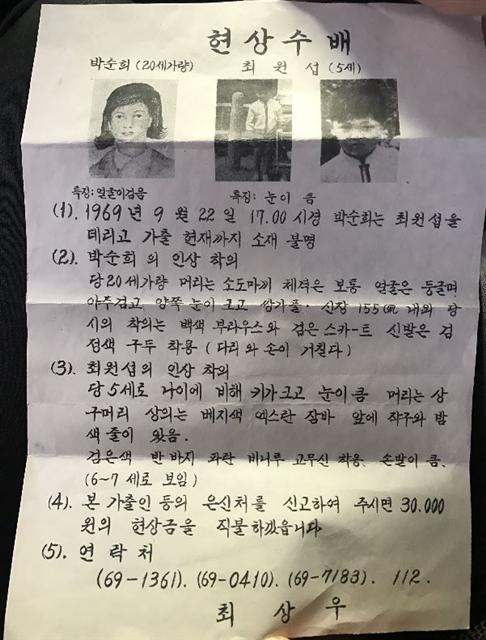 현상수배
박순희 (20세가량) 최원섭 (5세)
특징: 얼굴이검음 특징: 눈이 큼
(1). 1969년 9월 22일 17.00시경 박순희는 최원섭을
데리고 가출 현재까지 소재 불명
(2). 박순희의 인상 착의
당20세가량 머리는 소도마끼 체격은 보통 얼굴은 둥글며
아주검고 양쪽 눈이 크고 쌍가풀. 신장 155㎝ 내외 당
시의 착의는 백색 부라우스와 검은 스카-트 신발은 검
정색 구두 착용 (다리와 손이 거칠다)
(3). 최원섭의 인상 착의
당 5세로 나이에 비해 키가크고 눈이 큼 머리는 상
구머리 상의는 베지색 엑스란 잠바 앞에 쟉구와 밤
색 줄이 있음.
검은색 반바지 파란 비니루 고무신 착용. 손발이 큼.
(6~7세로 보임)
(4). 본 가출인 등의 은신처를 신고하여 주시면 30.000
원의 현상금을 직불하겠읍니다
(5). 연락처
(69-1361). (69-0410). (69-7183). 112.
최상우